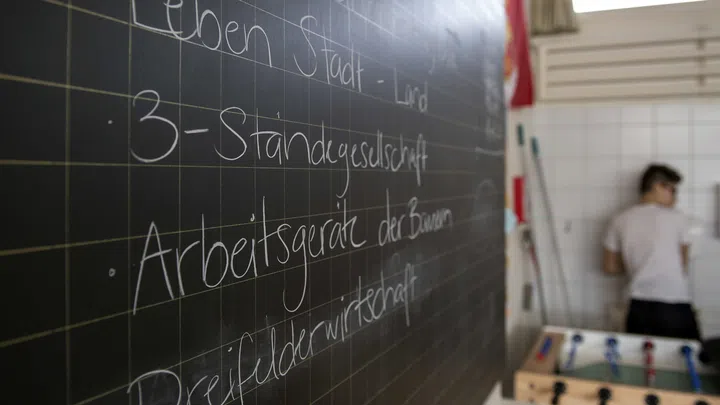 Leben Stadt - Land
· 3-Ständegesellschaft
· Arbeitsgerät der Bauern
Dreifelderwirtschaft